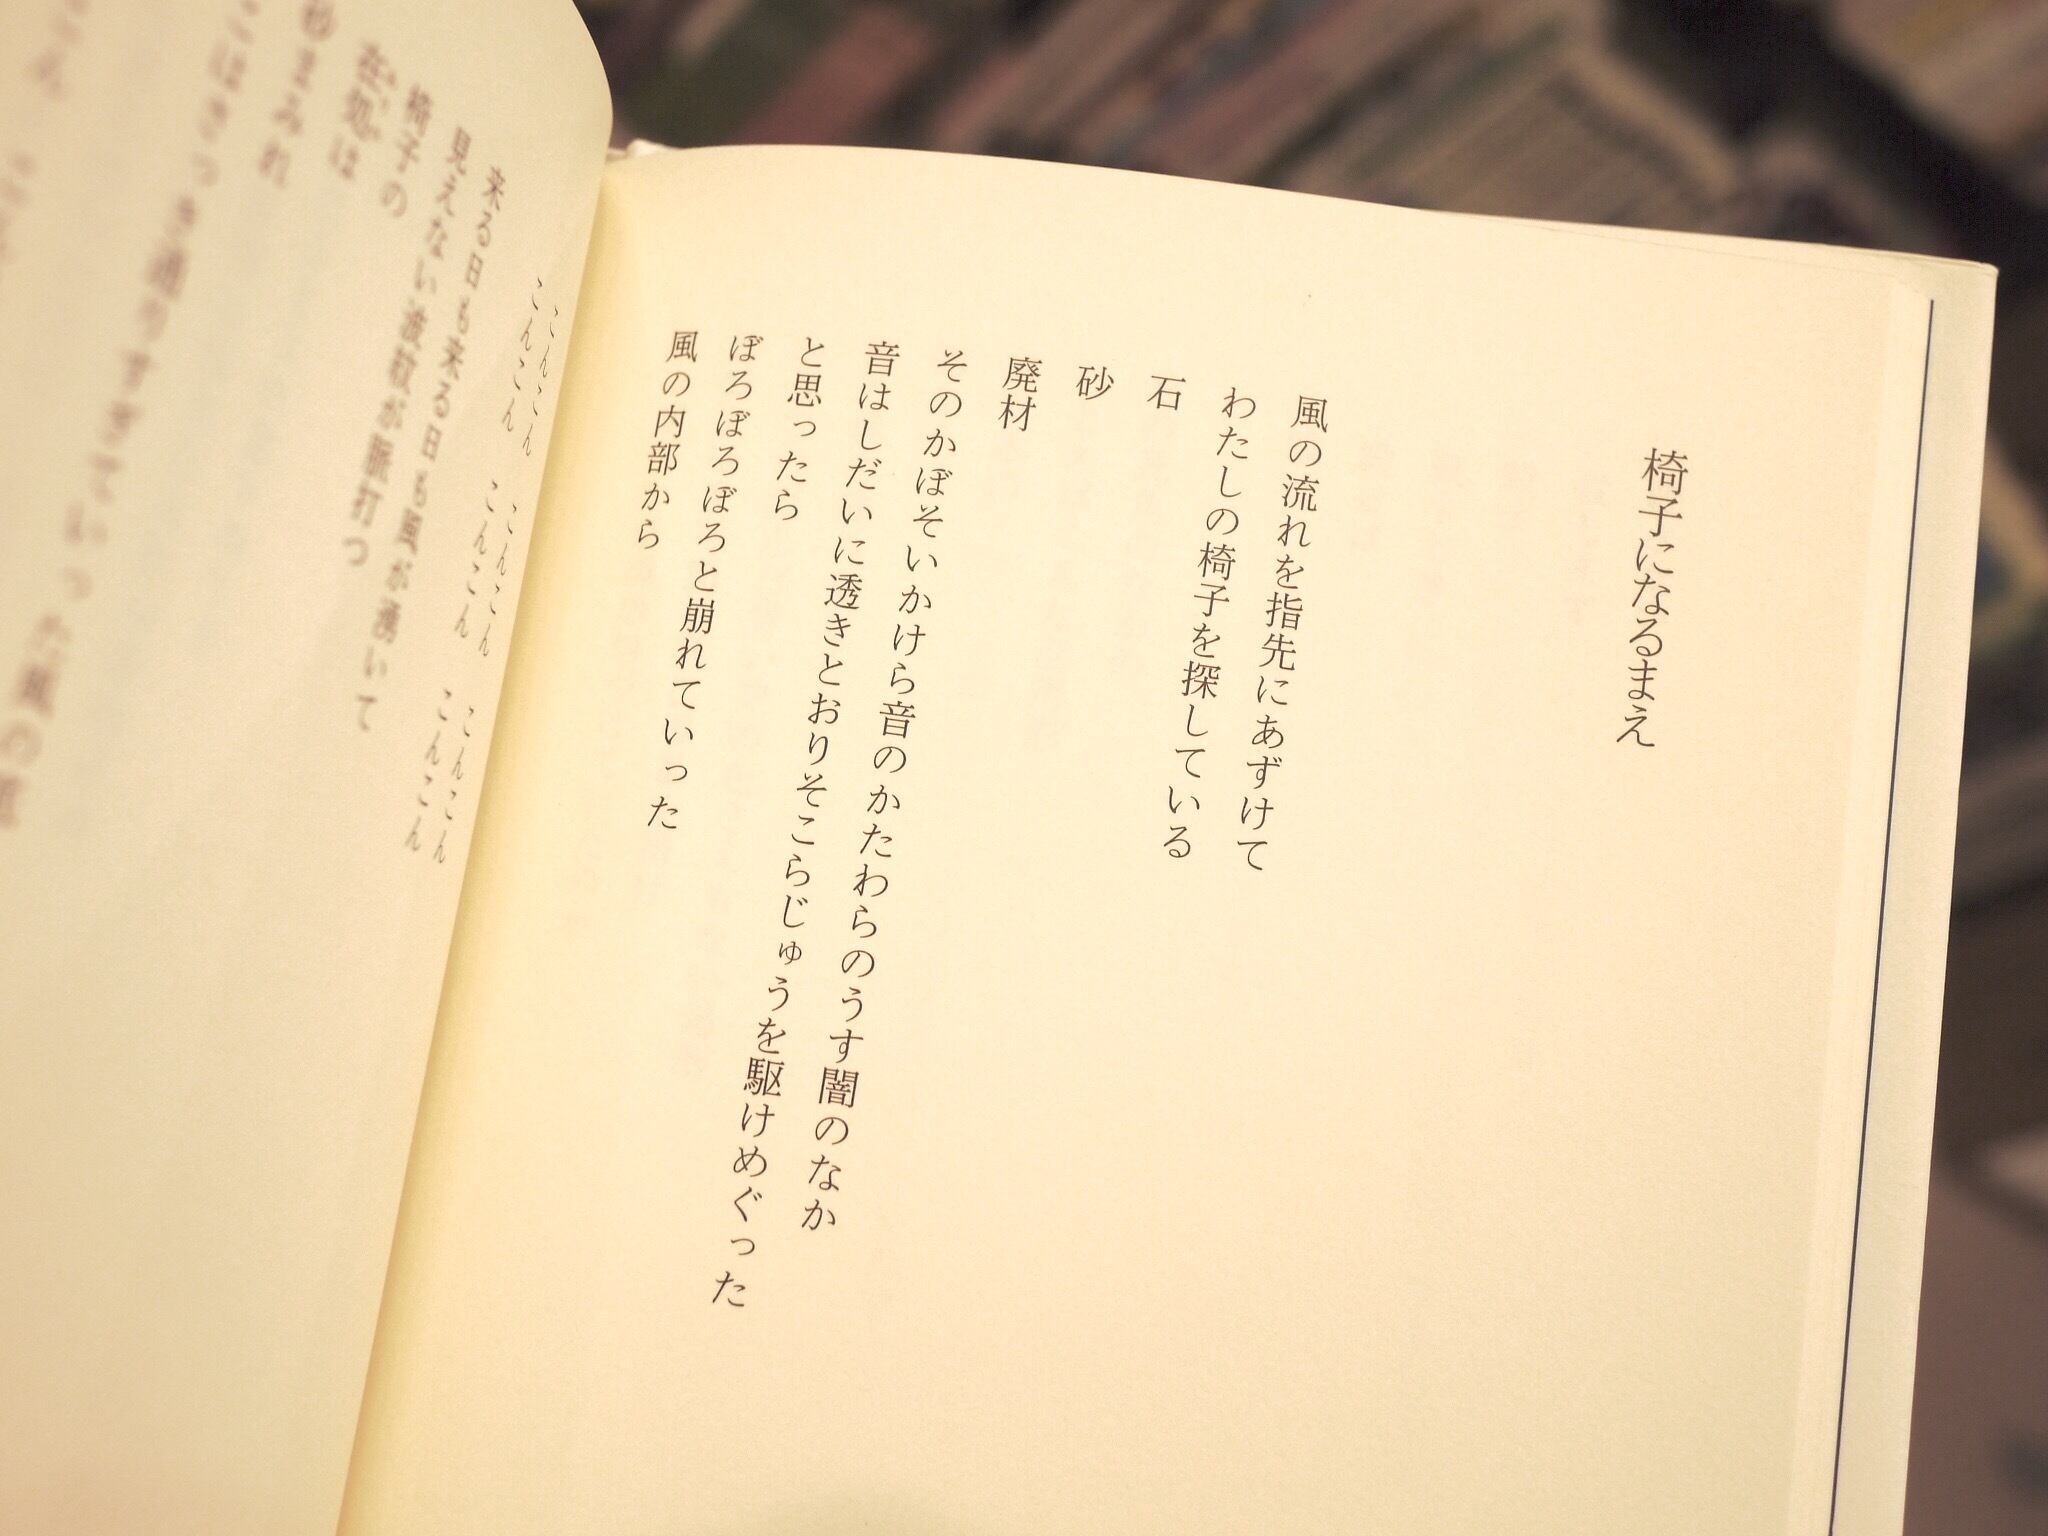 椅子になるまえ
風の流れを指先にあずけて
わたしの椅子を探している
石
砂
廃材
そのかぼそいかけら音のかたわらのうす闇のなか
音はしだいに透きとおりそこらじゅうを駆けめぐった
と思ったら
ぼろぼろぼろと崩れていった
風の内部から
こんこん こんこん こんこん
こんこん こんこん こんこん
来る日も来る日も風が湧いて
見えない波紋が脈打つ
椅子の
在処は
砂まみれ
こはさっき通りすぎていった風の